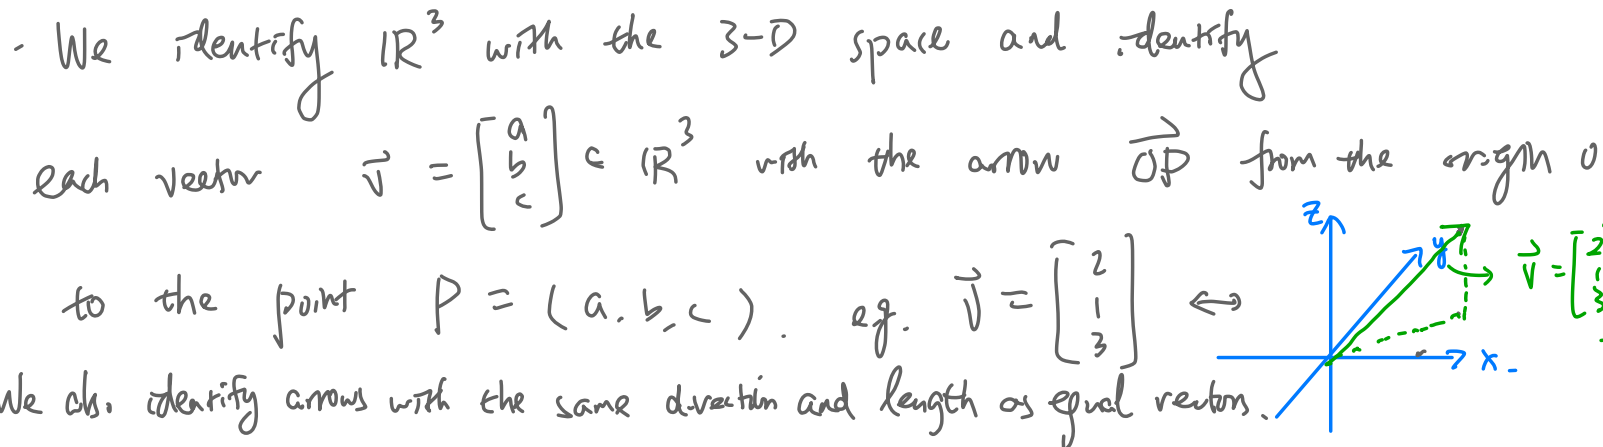 · We identify ℝ³ with the 3-D space and identify
each vector v⃗ = [a b c] ∈ ℝ³ with the arrow OP⃗ from the origin O
to the point P = (a, b, c). eg. v⃗ = [2 1 3] ↔
z y x v⃗ = [2 1 3
We also identify arrows with the same direction and length as equal vectors.